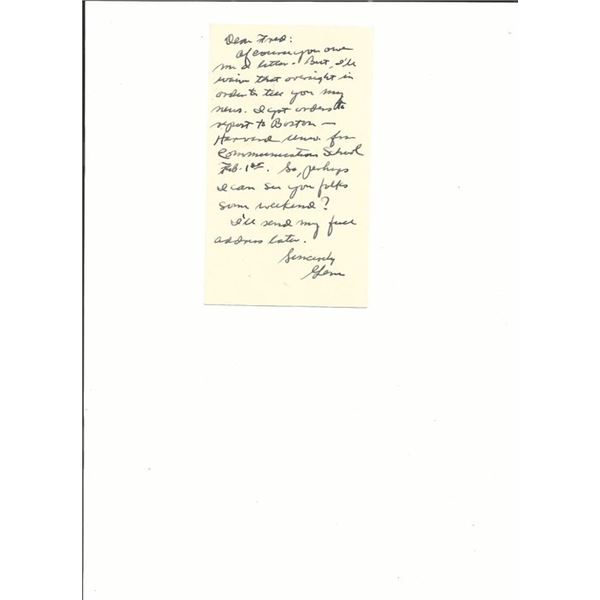 Dear Fred:
Of course you owe
me a letter. But, I'll
waive that oversight in
order to tell you my
news. I got orders to
report to Boston —
Harvard Univ. for
Communication School
Feb. 1st. So, perhaps
I can see you folks
some weekend?
I'll send my full
address later.
Sincerely